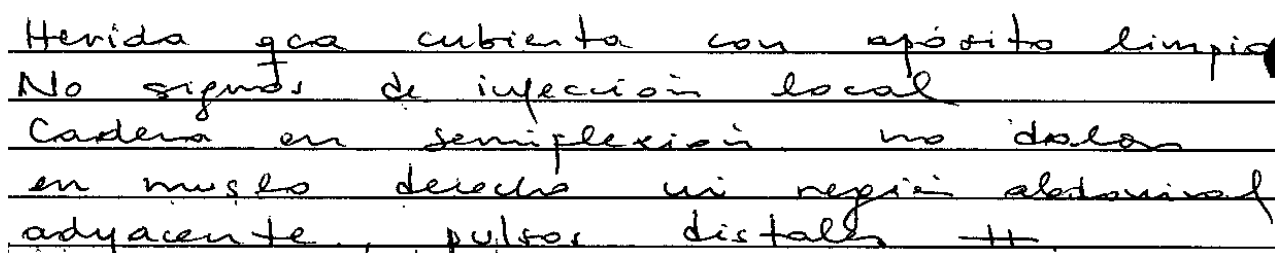 Herida qca cubierta con apósito limpio
No signos de infección local
Cadera en semiflexión no dolor
en muslo derecho ni región abdominal
adyacente, pulsos distales ++.